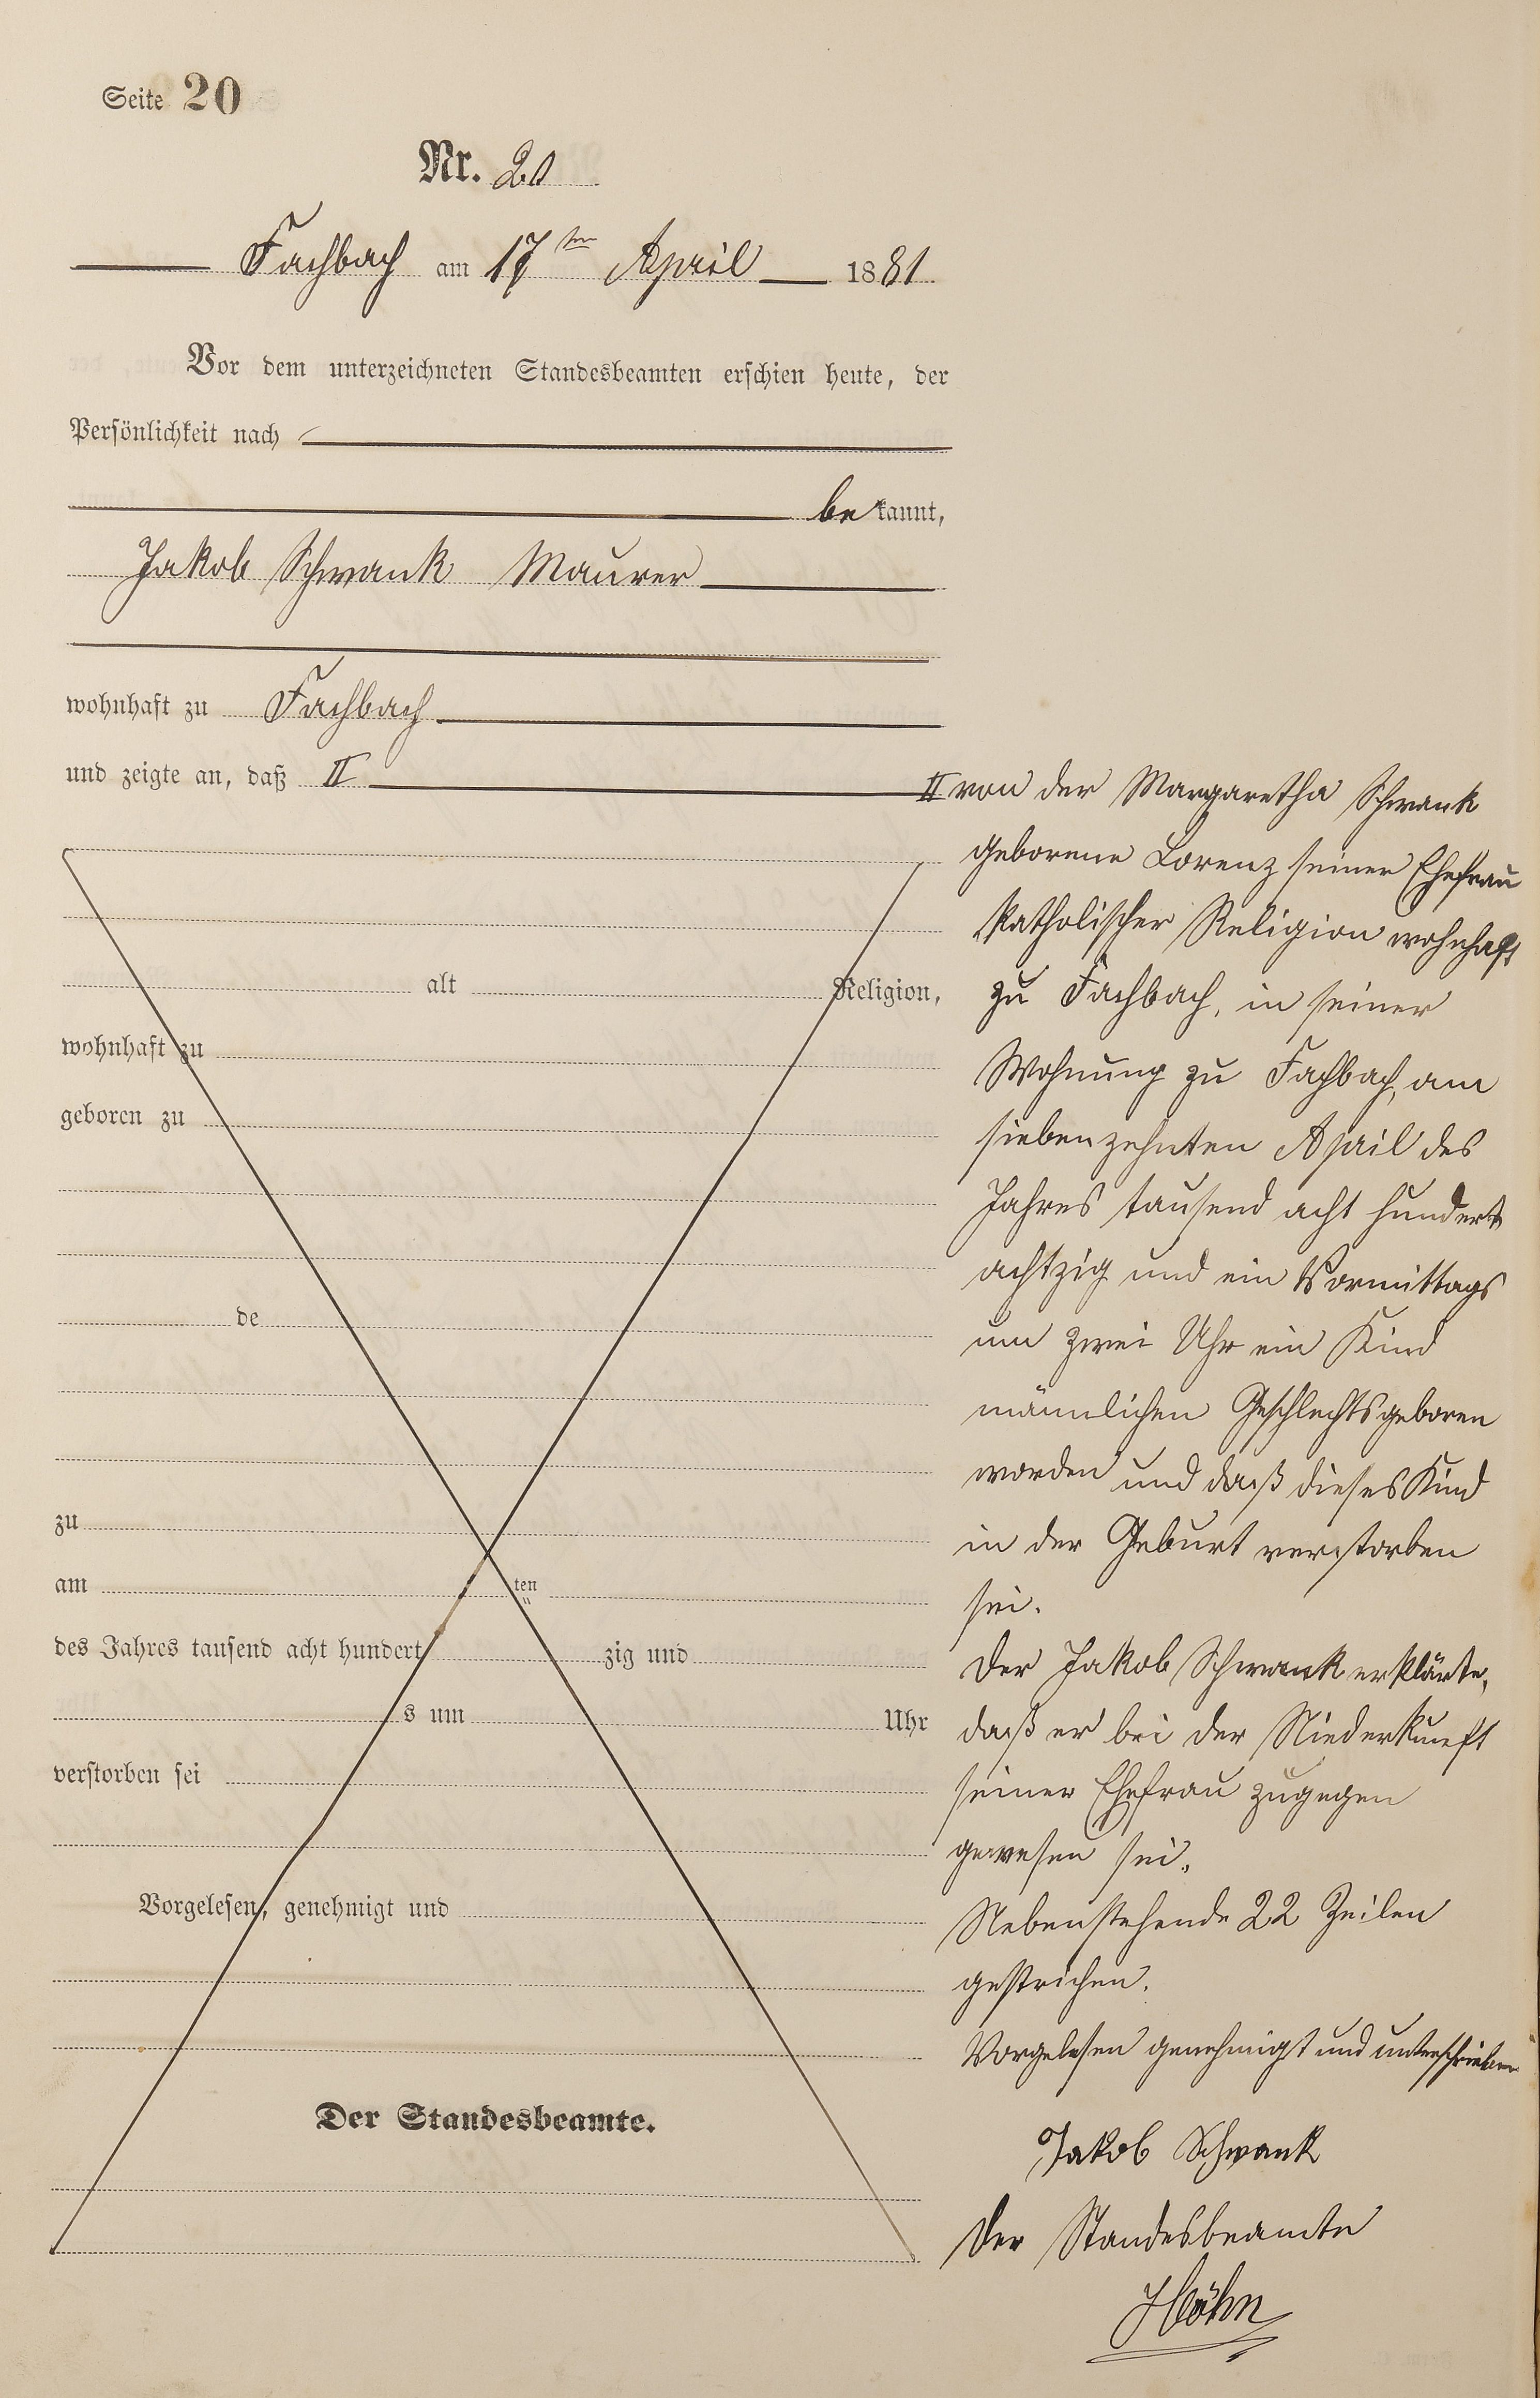 Seite 20
Nr. 20
Fachbach am 17ten April 1881
Vor dem unterzeichneten Standesbeamten erschien heute, der
Persönlichkeit nach
bekannt,
Jakob Schwank Maurer
wohnhaft zu Fachbach
und zeigte an, daß II
II von der Margaretha Schwank
geborene Lorenz seiner Ehefrau
katholischer Religion wohnhaft
zu Fachbach, in seiner
Wohnung zu Fachbach, am
siebenzehnten April des
Jahres tausend acht hundert
achtzig und ein Vormittags
um zwei Uhr ein Kind
männlichen Geschlechts geboren
worden und daß dieses Kind
in der Geburt verstorben
sei.
Der Jakob Schwank erklärte,
daß er bei der Niederkunft
seiner Ehefrau zugegen
gewesen sei.
Nebenstehende 22 Zeilen
gestrichen.
Vorgelesen genehmigt und unterschrieben
Jakob Schwank
Der Standesbeamte
Höhn
alt Religion,
wohnhaft zu
geboren zu
de
zu
am ten
des Jahres tausend acht hundert zig und
s um Uhr
verstorben sei
Vorgelesen, genehmigt und
Der Standesbeamte.